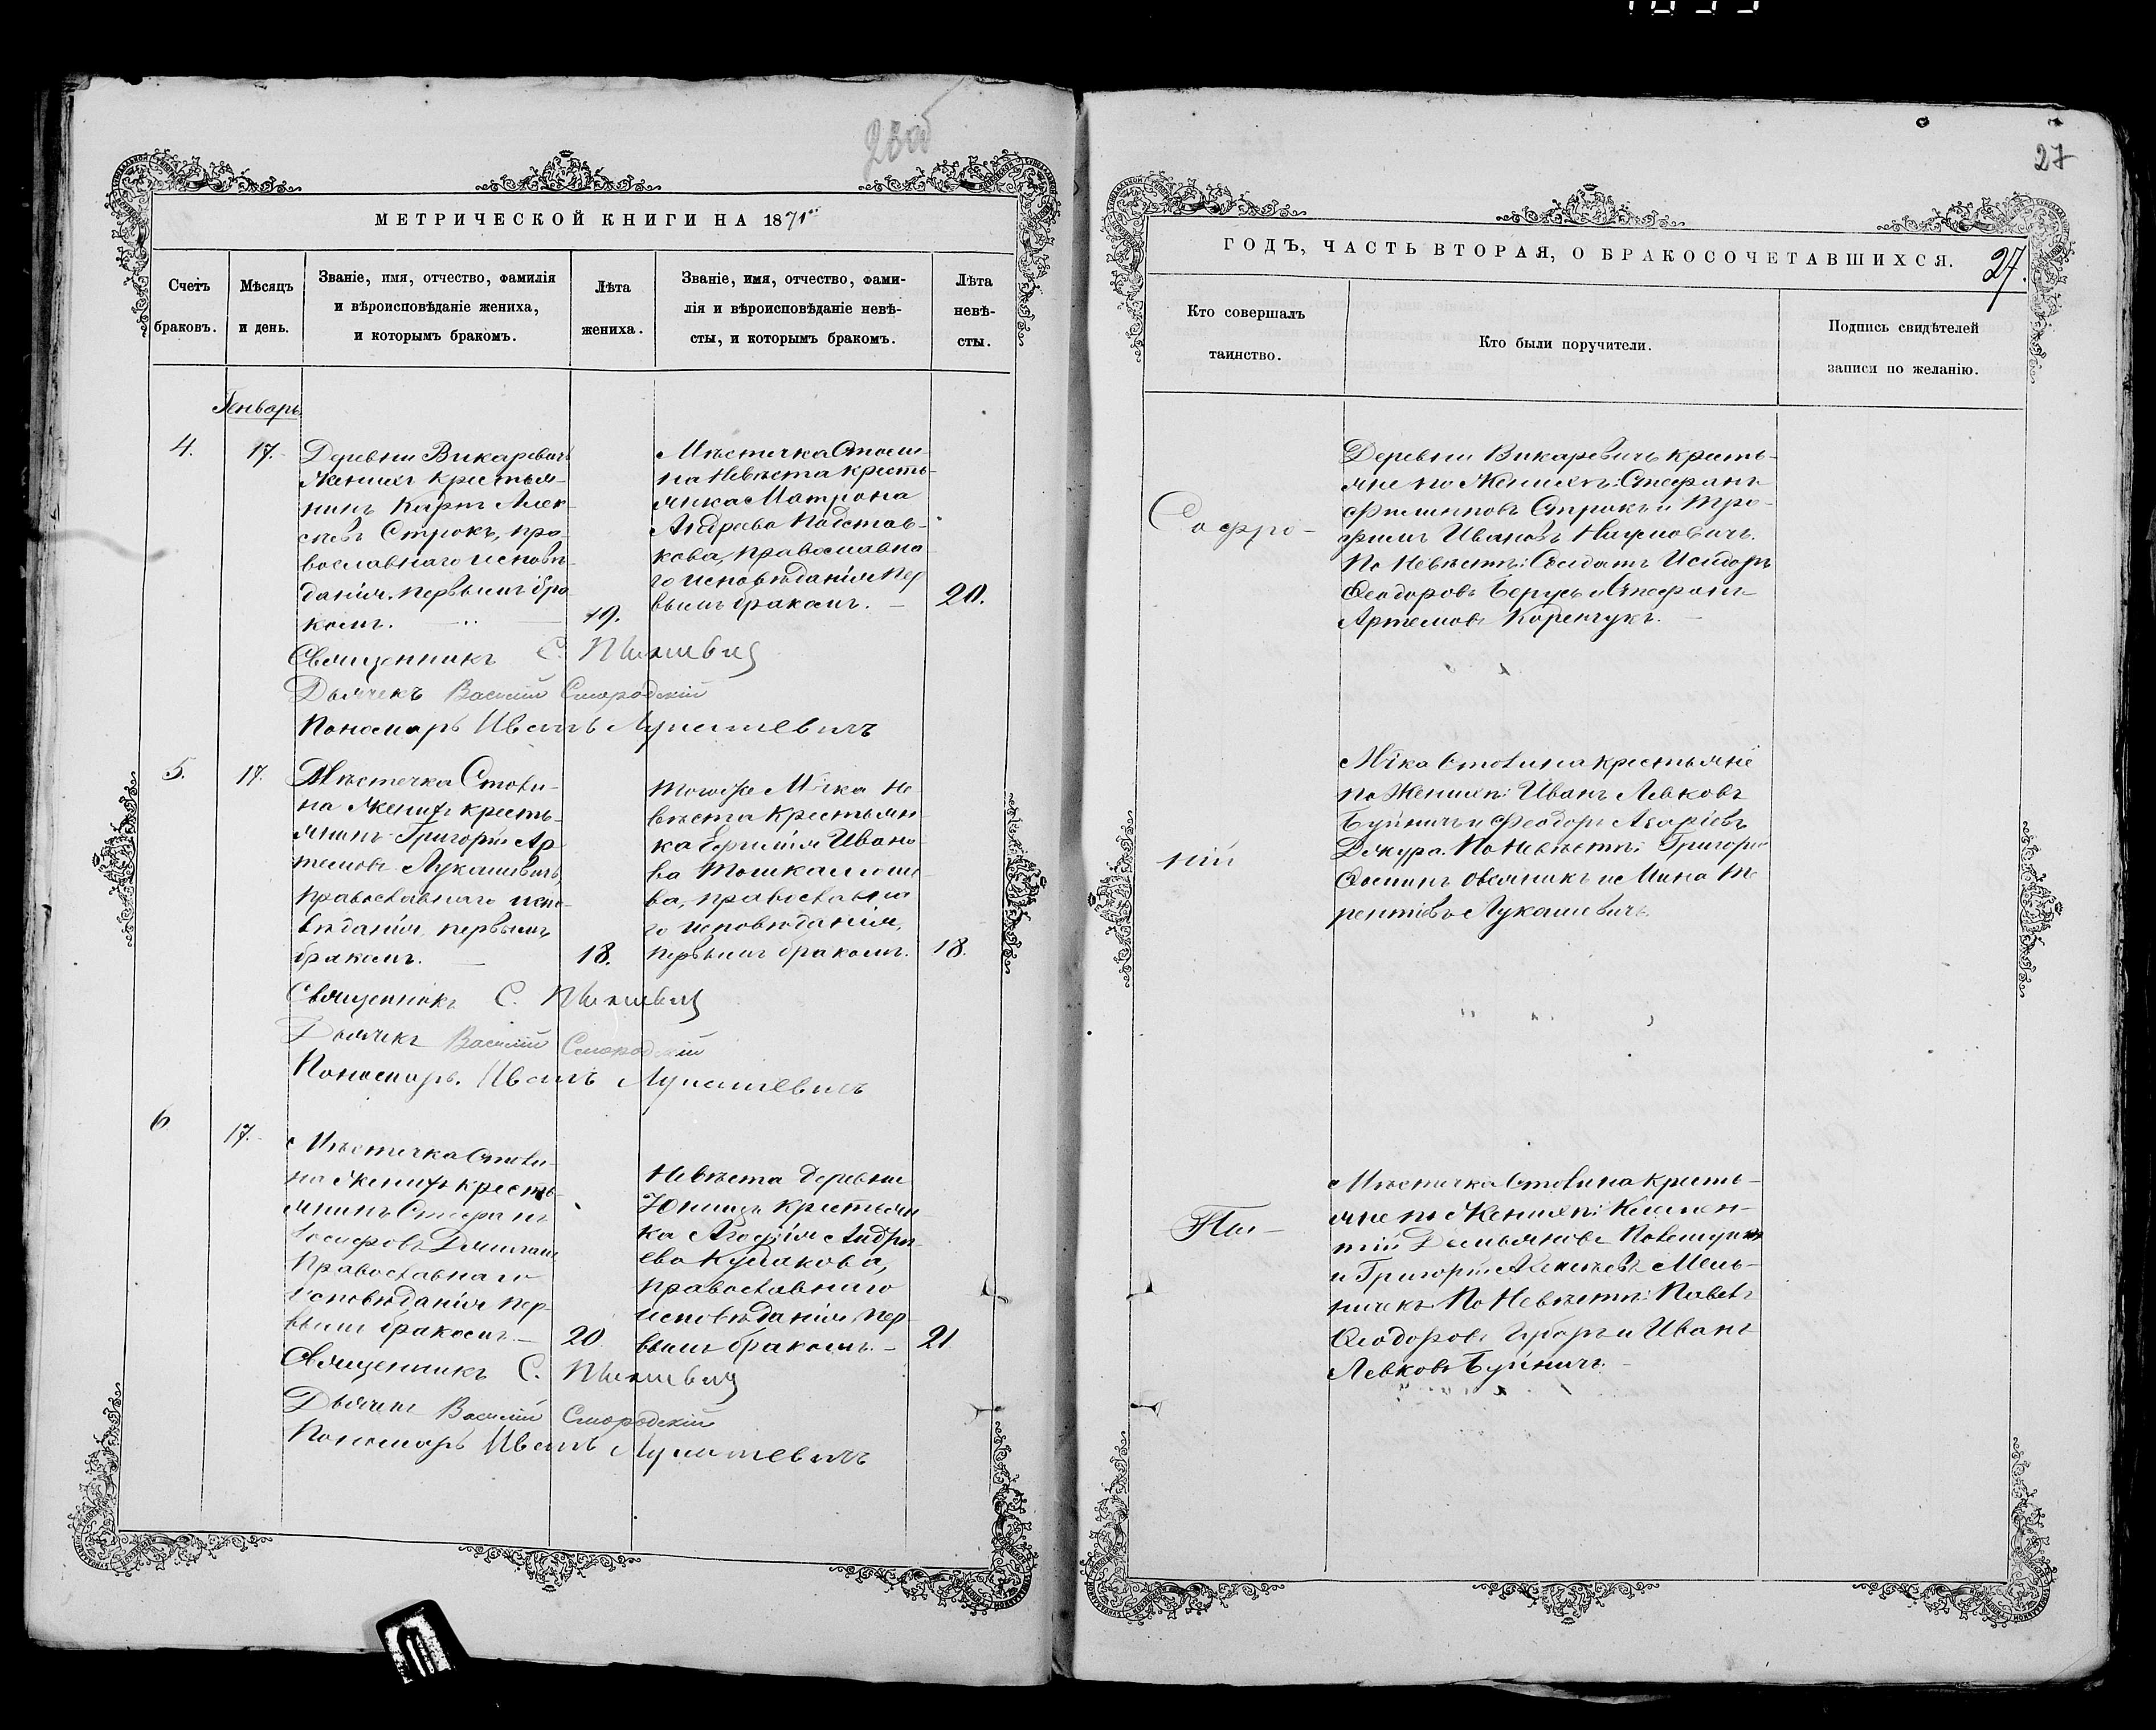 27
МЕТРИЧЕСКОЙ КНИГИ НА 1871й
Счетъ браковъ.
Мѣсяцъ и день.
Званіе, имя, отчество, фамилія
и вѣроисповѣданіе жениха,
и которымъ бракомъ.
Лѣта
жениха.
Званіе, имя, отчество, фами-
лія и вѣроисповѣданіе невѣ-
сты, и которымъ бракомъ.
Лѣта
невѣ-
сты.
Генварь
4.
17.
Деревни Викаревичъ
Женихъ крестья-
нинъ Карпъ Алек-
сѣевъ Строкъ, пра-
вославнаго исповѣ-
данія. первымъ бра-
комъ.
19.
Мѣстечка Столи-
на Невѣста кресть-
янка Матрона
Андреева Подстав-
кова, православна-
го исповѣданія пер
вымъ бракомъ.
20.
Священникъ С.
Дьячекъ Василій Смородскій
Пономарь Иванъ Лукашевичъ
5.
17.
Мѣстечка Столи-
на Женихъ кресть-
янинъ Григорій Ар-
темовъ Лукашевичъ,
православнаго испо-
вѣданія, первымъ
бракомъ.
18.
тогоже М-чка Не-
вѣста Крестьян-
ка Евфимія Ивано-
ва
ва, православна
го исповѣданія,
первымъ бракомъ.
18.
Священникъ С.
Дьячекъ Василій Смородскій
Пономарь Иванъ Лукашевичъ
6
17.
Мѣстечка Столи-
на Женихъ кресть-
янинъ Стефанъ
Іосифовъ
Православнаго
исповѣданія пер-
вымъ бракомъ.
20
Невѣста деревни
Юнищъ крестьян-
ка Агафія Андре-
ева Кудакова,
православнаго
исповѣданія пер-
вымъ бракомъ.
21
Священникъ С.
Дьячекъ Василій Смородскій
Пономарь Иванъ Лукашевичъ
ГОДЪ, ЧАСТЬ ВТОРАЯ, О БРАКОСОЧЕТАВШИХСЯ.
27.
Кто совершалъ
таинство.
Кто были поручители.
Подпись свидѣтелей
записи по желанію.
Софро-
Деревни Викаревичъ кресть-
яне по Женихѣ: Стефанъ
Филиповъ Строкъ и Тро-
фимъ Ивановъ Наумовичъ.
По Невѣстѣ: Солдатъ Исидоръ
Ѳеодоровъ Берусь и Стефанъ
Артемовъ Коренчукъ.
ній
М-чка Столина крестьяне
по Женихѣ: Иванъ Левковъ
Буйничъ и Феодоръ Азаріевъ
Дежура. По Невѣстѣ: Григорій
Ѳоминъ Овсяникъ и Мина Те-
рентіевъ Лукашевичъ.
Пи-
Мѣстечка Столина кресть-
яне по Женихѣ: Климен-
тій Демьяновъ
и Григорій Мель-
ничекъ По Невѣстѣ: Павелъ
Ѳеодоровъ и Иванъ
Левковъ Буйничъ.